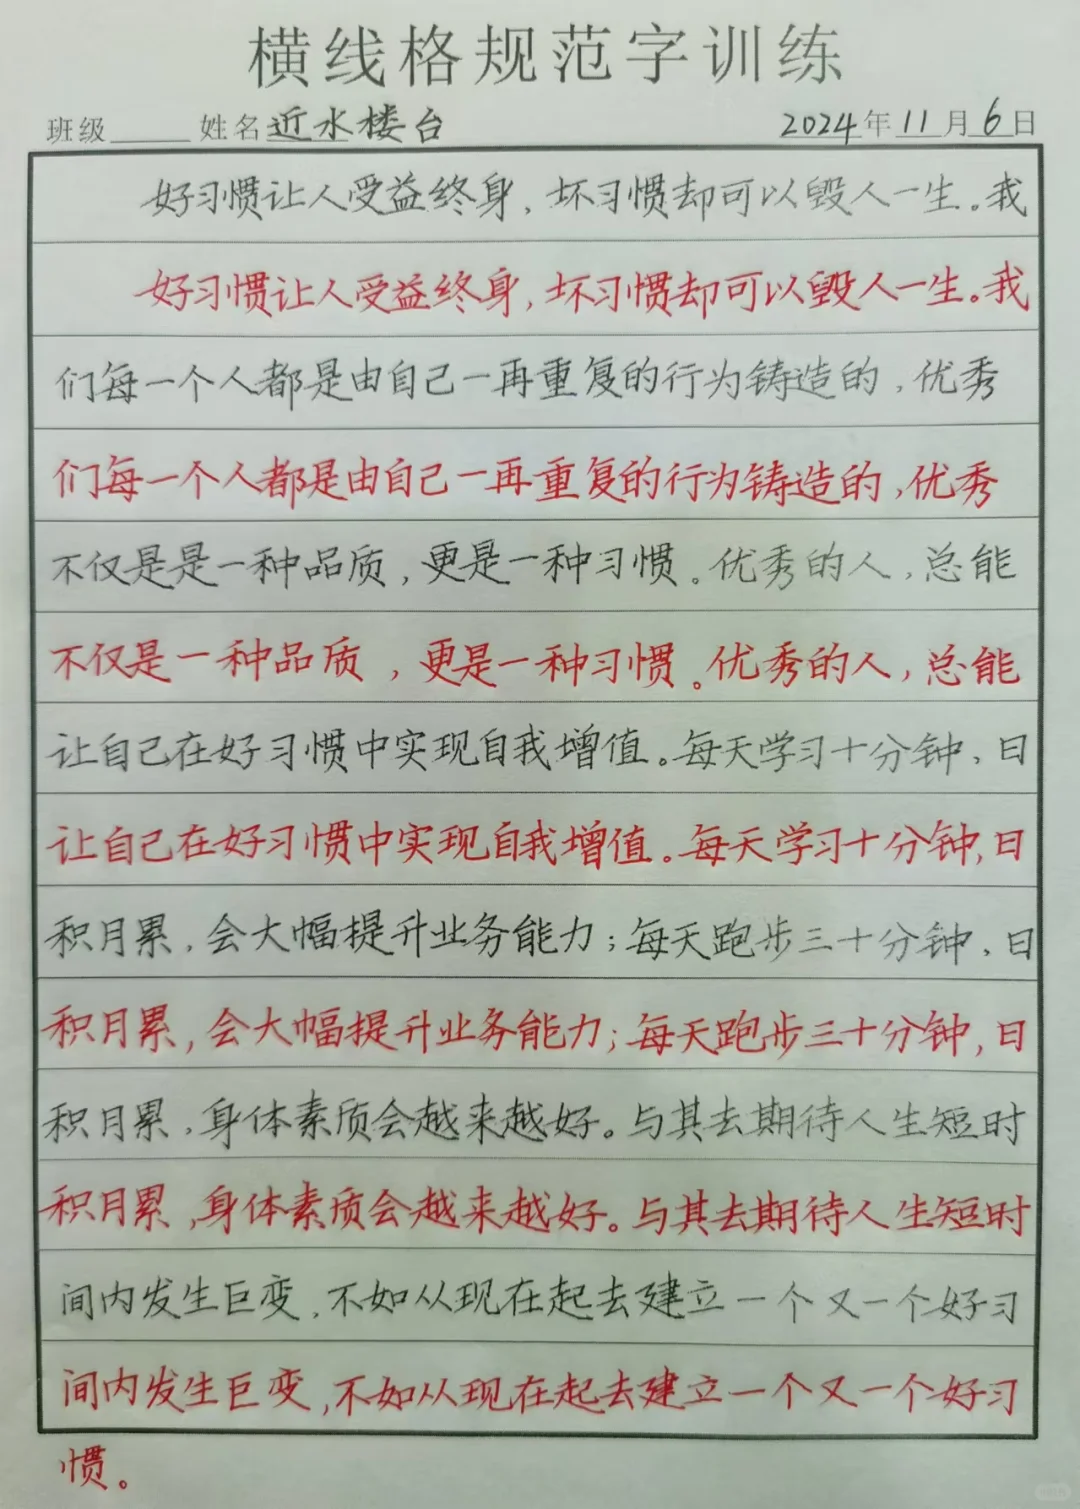 横线格规范字训练
班级____ 姓名近水楼台 2024年11月6日
好习惯让人受益终身，坏习惯却可以毁人一生。我
好习惯让人受益终身，坏习惯却可以毁人一生。我
们每一个人都是由自己一再重复的行为铸造的，优秀
们每一个人都是由自己一再重复的行为铸造的，优秀
不仅是是一种品质，更是一种习惯。优秀的人，总能
不仅是一种品质，更是一种习惯。优秀的人，总能
让自己在好习惯中实现自我增值。每天学习十分钟，日
让自己在好习惯中实现自我增值。每天学习十分钟，日
积月累，会大幅提升业务能力；每天跑步三十分钟，日
积月累，会大幅提升业务能力；每天跑步三十分钟，日
积月累，身体素质会越来越好。与其去期待人生短时
积月累，身体素质会越来越好。与其去期待人生短时
间内发生巨变，不如从现在起去建立一个又一个好习
间内发生巨变，不如从现在起去建立一个又一个好习
惯。